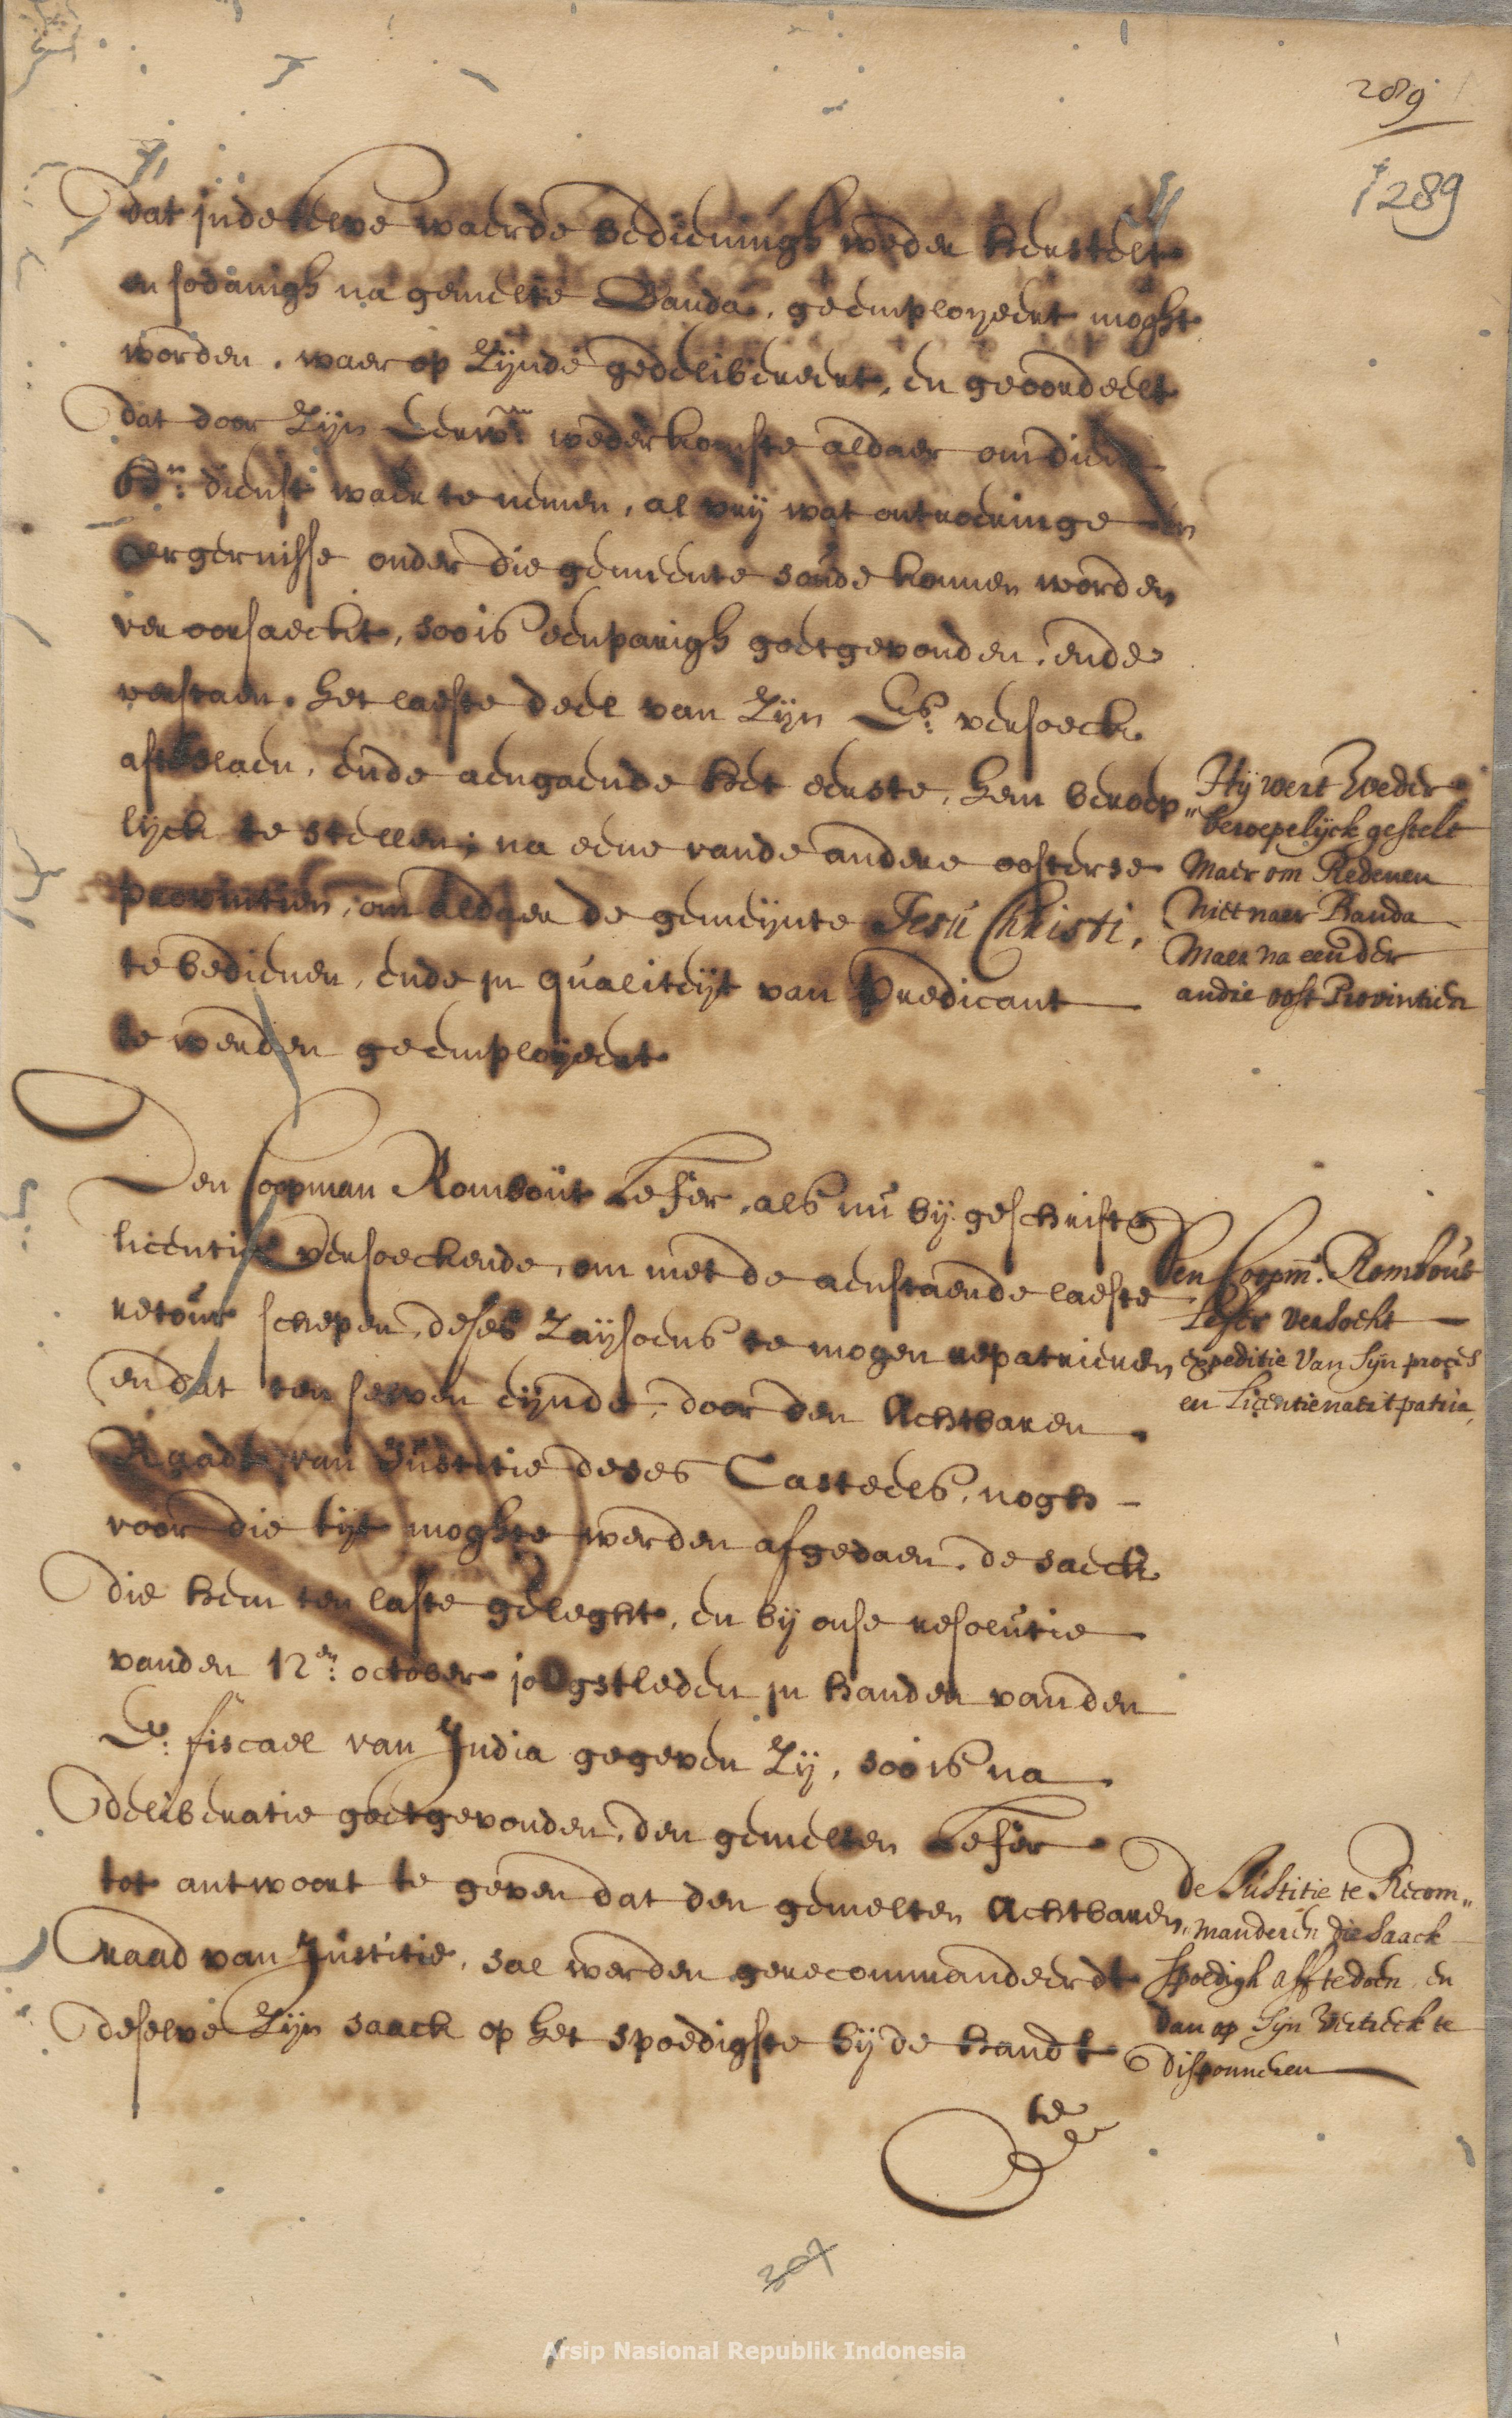 289
289
dat in deselve waerde bedieningh weder herstelt
en sodanigh na gemelte Banda, geemployeert moght
worden, waer op Zijnde gedelibereert, en geoordeelt
dat door Zijn Eerw: wederkomste aldaer om dien
dienst waer te nemen, al vrij wat ontroeringe en
ergernisse onder die gemeente soude konnen worden
veroorsaeckt, soo is eenparigh goetgevonden, ende
verstaen, het laeste deel van Zijn E: versoeck
af te slaen, ende aengaende het eerste, hem beroep„
lijck te stellen, na eene vande andere oosterse
provintien, om aldaer de gemeijnte Jesu Christi,
te bedienen, ende in qualiteijt van Predicant
te werden geemployeert
Hij wert weder
beroepelijck gestelt
Maer om Redenen
Niet naer Banda
Maer na een der
andre oost Provintien
Den Coopman Rombout Lefer, als nu bij geschrifte
licentie versoeckende, om met de aenstaende laeste
retour schepen, deses Zaijsoens te mogen repatrieren
en dat ten selven eijnde, door den Achtbaren
Raadt van Justitie deses Casteels, nogh
voor die tijt moghte werden afgedaen, de saeck
die hem ten laste geleght, en bij onse resolutie
vanden 12en: october jongstleden in handen vanden
E: fiscael van India gegeven Zij, soo is na
deliberatie goetgevonden, den gemelten Lefer
tot antwoort te geven dat den gemelten Achtbaren
raad van Justitie, sal werden gerecommandeerdt
deselve Zijn saack op het spoedigste bij de handt
te
Den Coopm: Rombout
Lefer versocht
expeditie van Sijn proces
en Licentie naer 't patria
De Justitie te Recom„
manderen die saack
spoedigh aff te doen en
dan op Sijn vertreck te
disponneren
307
Arsip Nasional Republik Indonesia